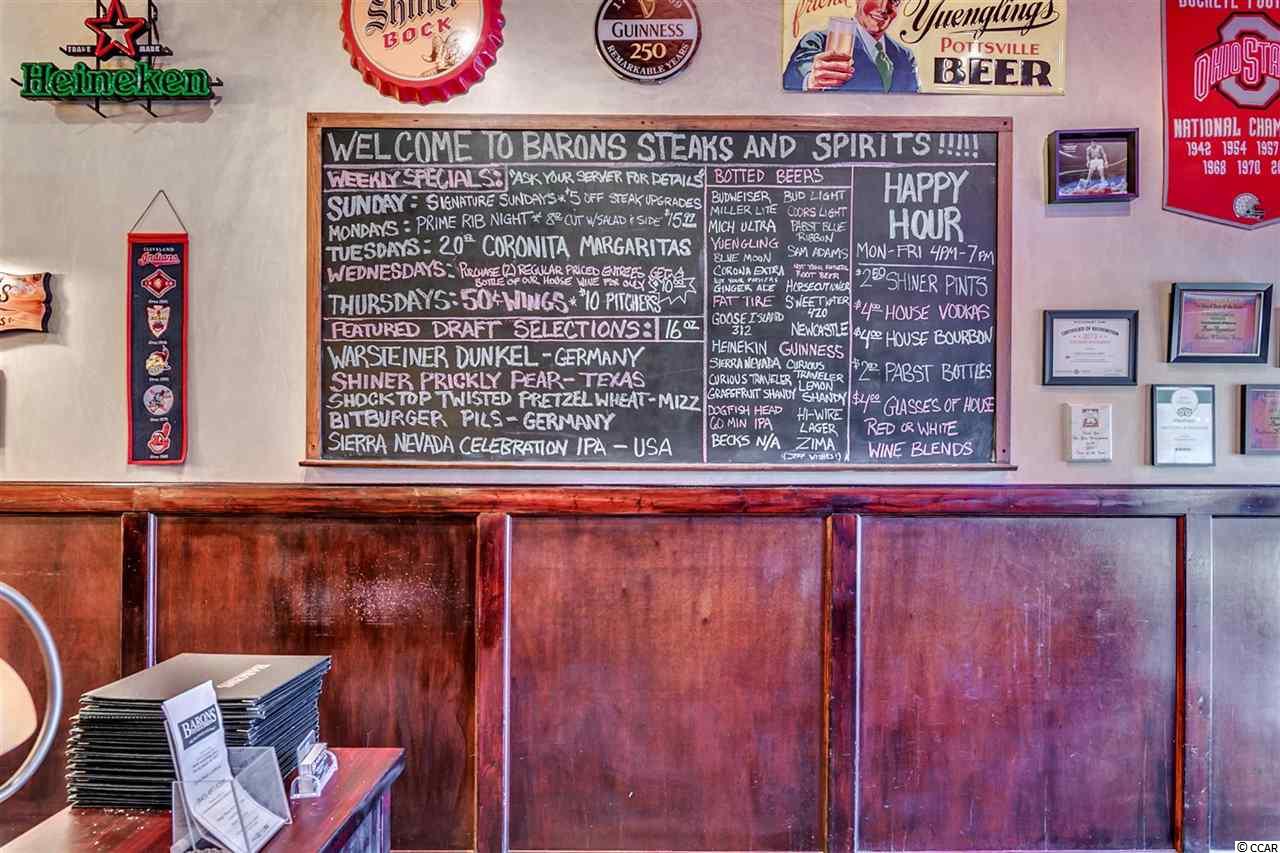 TRADE MARK
Heineken
Shiner
BOCK
GUINNESS
250
REMARKABLE YEARS
friend
Yuengling's
POTTSVILLE
BEER
OHIO STA
NATIONAL CHAM
1942 1954 1957
1968 1970 20
CLEVELAND
Indians
WELCOME TO BARONS STEAKS AND SPIRITS !!!!!
WEEKLY SPECIALS: *ASK YOUR SERVER FOR DETAILS*
SUNDAY: SIGNATURE SUNDAYS * $5 OFF STEAK UPGRADES
MONDAYS: PRIME RIB NIGHT * 8oz CUT W/SALAD & SIDE $15.99
TUESDAYS: 20oz CORONITA MARGARITAS
WEDNESDAYS: PURCHASE (2) REGULAR PRICED ENTREES GET A
BOTTLE OF OUR HOUSE WINE FOR ONLY $10.00
THURSDAYS: 50¢ WINGS * $10 PITCHERS
FEATURED DRAFT SELECTIONS: 16 OZ
WARSTEINER DUNKEL - GERMANY
SHINER PRICKLY PEAR - TEXAS
SHOCKTOP TWISTED PRETZEL WHEAT - MIZZ
BITBURGER PILS - GERMANY
SIERRA NEVADA CELEBRATION IPA - USA
BOTTED BEERS
BUDWEISER BUD LIGHT
MILLER LITE COORS LIGHT
MICH ULTRA PABST BLUE
RIBBON
YUENGLING SAM ADAMS
BLUE MOON
CORONA EXTRA NOT YOUR FATHERS
ROOT BEER
NOT YOUR FATHERS
GINGER ALE HORSECUTIONER
FAT TIRE SWEETWATER
420
GOOSE ISLAND
312 NEWCASTLE
HEINEKIN GUINNESS
SIERRA NEVADA CURIOUS
TRAVELER
CURIOUS TRAVELER LEMON
GRAPEFRUIT SHANDY SHANDY
DOGFISH HEAD HI-WIRE
60 MIN IPA LAGER
BECKS N/A ZIMA
HAPPY
HOUR
MON-FRI 4PM-7PM
$2.50 SHINER PINTS
$4.00 HOUSE VODKAS
$4.00 HOUSE BOURBON
$2.00 PABST BOTTLES
$4.00 GLASSES OF HOUSE
RED OR WHITE
WINE BLENDS
CERTIFICATE OF RECOGNITION
2013
BARONS
© CCAR